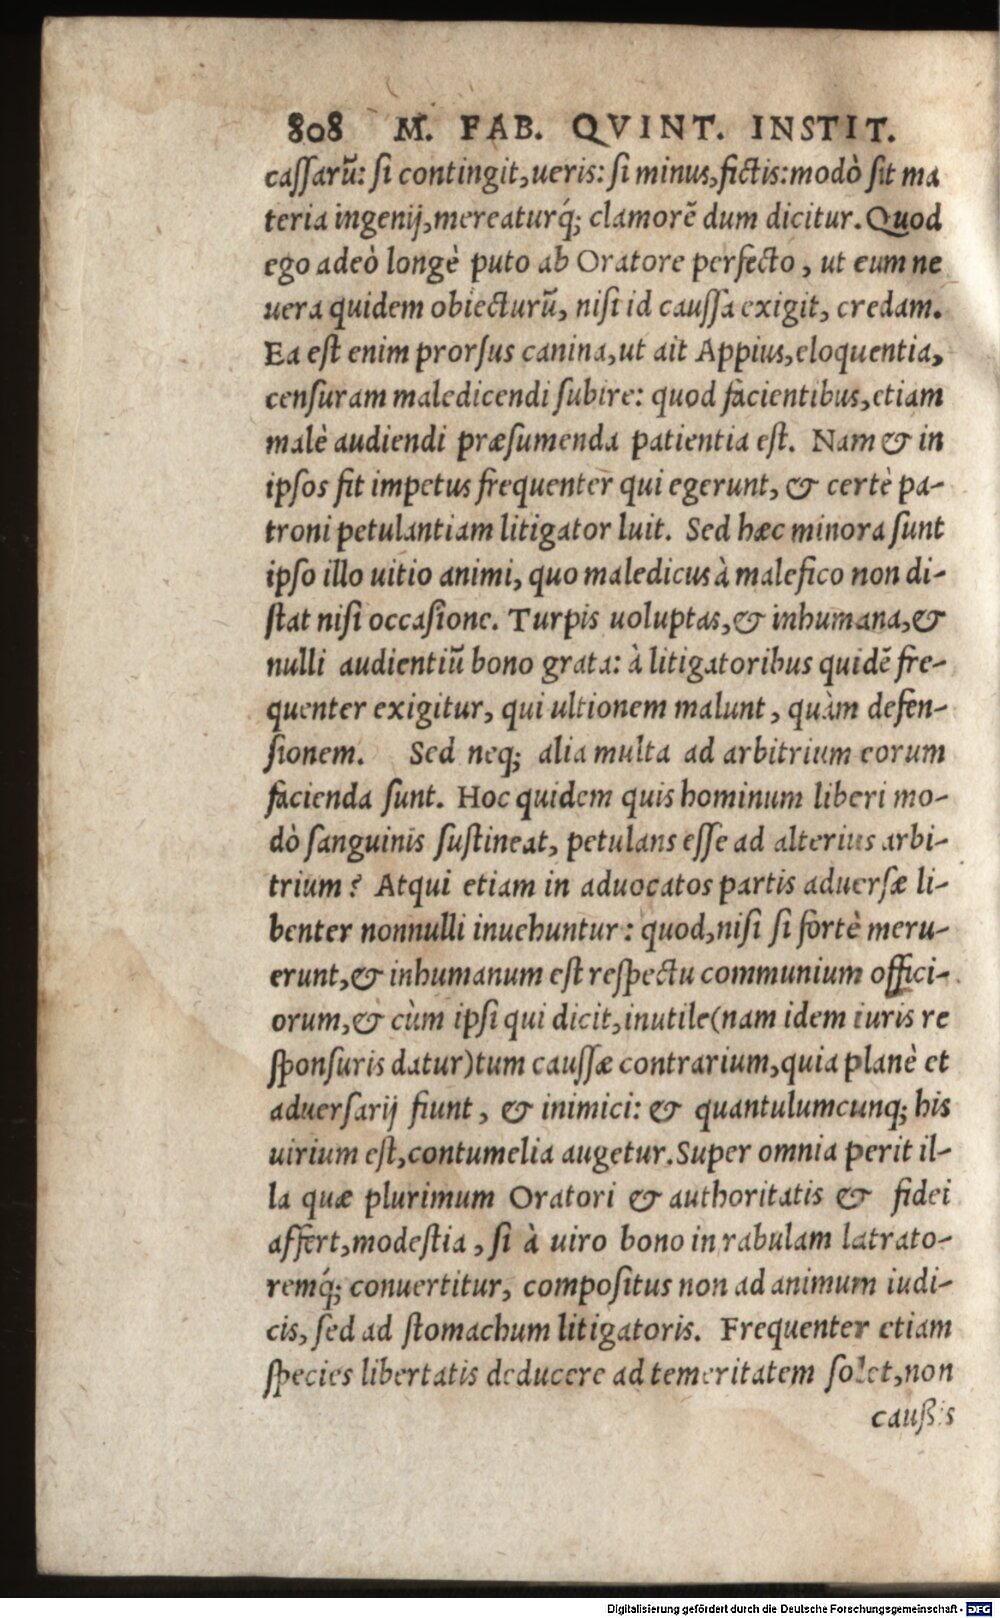 808 M. FAB. QVINT. INSTIT.
caſſarũ: ſi contingit, ueris: ſi minus, fictis: modò ſit ma
teria ingenij, mereaturq́; clamorẽ dum dicitur. Quod
ego adeò longè puto ab Oratore perfecto, ut eum ne
uera quidem obiecturũ, niſi id cauſſa exigit, credam.
Ea eſt enim prorſus canina, ut ait Appius, eloquentia,
cenſuram maledicendi ſubire: quod facientibus, etiam
malè audiendi præſumenda patientia eſt. Nam & in
ipſos fit impetus frequenter qui egerunt, & certè pa-
troni petulantiam litigator luit. Sed hæc minora ſunt
ipſo illo uitio animi, quo maledicus à malefico non di-
ſtat niſi occaſione. Turpis uoluptas, & inhumana, &
nulli audientiũ bono grata: à litigatoribus quidẽ fre-
quenter exigitur, qui ultionem malunt, quàm defen-
ſionem. Sed neq; alia multa ad arbitrium eorum
facienda ſunt. Hoc quidem quis hominum liberi mo-
dò ſanguinis ſuſtineat, petulans eſſe ad alterius arbi-
trium? Atqui etiam in aduocatos partis aduerſæ li-
benter nonnulli inuehuntur: quod, niſi ſi fortè meru-
erunt, & inhumanum eſt reſpectu communium offici-
orum, & cùm ipſi qui dicit, inutile (nam idem iuris re
ſponſuris datur) tum cauſſæ contrarium, quia planè et
aduerſarij fiunt, & inimici: & quantulumcunq; his
uirium eſt, contumelia augetur. Super omnia perit il-
la quæ plurimum Oratori & authoritatis & fidei
affert, modeſtia, ſi à uiro bono in rabulam latrato-
remq́; conuertitur, compoſitus non ad animum iudi-
cis, ſed ad ſtomachum litigatoris. Frequenter etiam
ſpecies libertatis deducere ad temeritatem ſolet, non
cauſsis
Digitalisierung gefördert durch die Deutsche Forschungsgemeinschaft - DFG